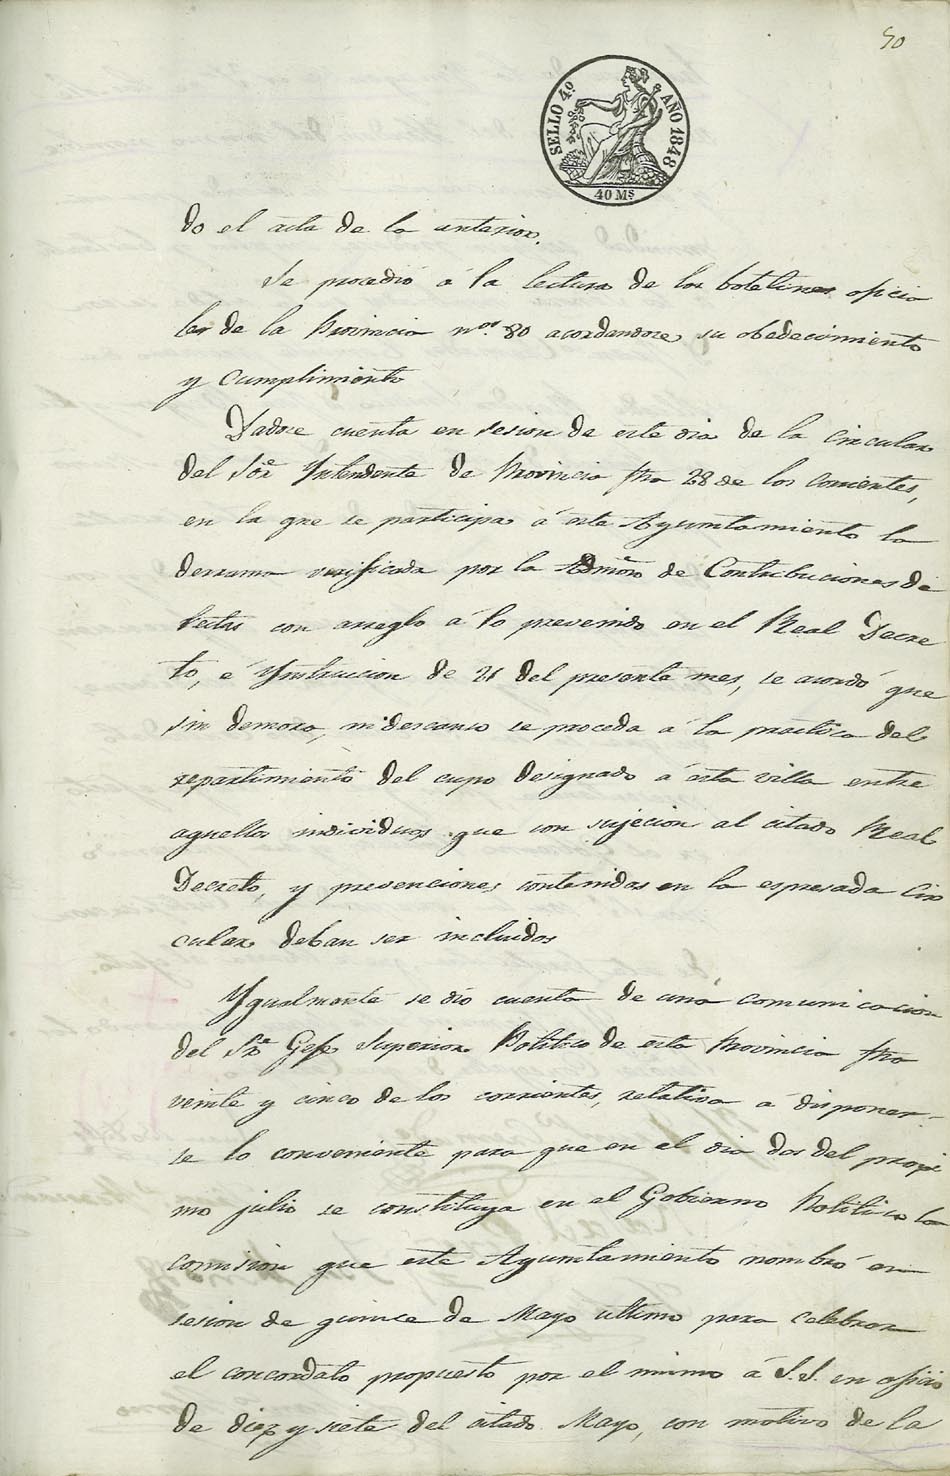 50
SELLO 4º AÑO 1848
40 Ms
do el acta de la anterior.
Se procedió á la lectura de los boletines oficia
les de la Provincia nos. 80 acordandose su obedecimiento
y cumplimiento
Dadose cuenta en sesion de este dia de la circular
del Sor Yntendente de Provincia fha 28 de los corrientes,
en la que se participa á este Ayuntamiento la
derrama verificada por la Admon de Contribuciones di
rectas con arreglo á lo prevenido en el Real Decre
to, é Ynstruccion de 21 del presente mes, se acordó que
sin demora, ni descanso se proceda á la practica del
repartimiento del cupo designado á esta villa entre
aquellos individuos que con sujecion al citado Real
Decreto, y prevenciones contenidas en la espresada Cir
cular deban ser incluidos
Ygualmente se dio cuenta de una comunicacion
del Sr Gefe Superior Politico de esta Provincia fha
veinte y cinco de los corrientes, relativa á disponer
se lo conveniente para que en el dia dos del proxi
mo julio se constituya en el Gobierno Politico la
comision que este Ayuntamiento nombró en
sesion de quince de Mayo ultimo para celebrar
el concordato propuesto por el mismo á S.S. en oficio
de diez y siete del citado Mayo, con motivo de la